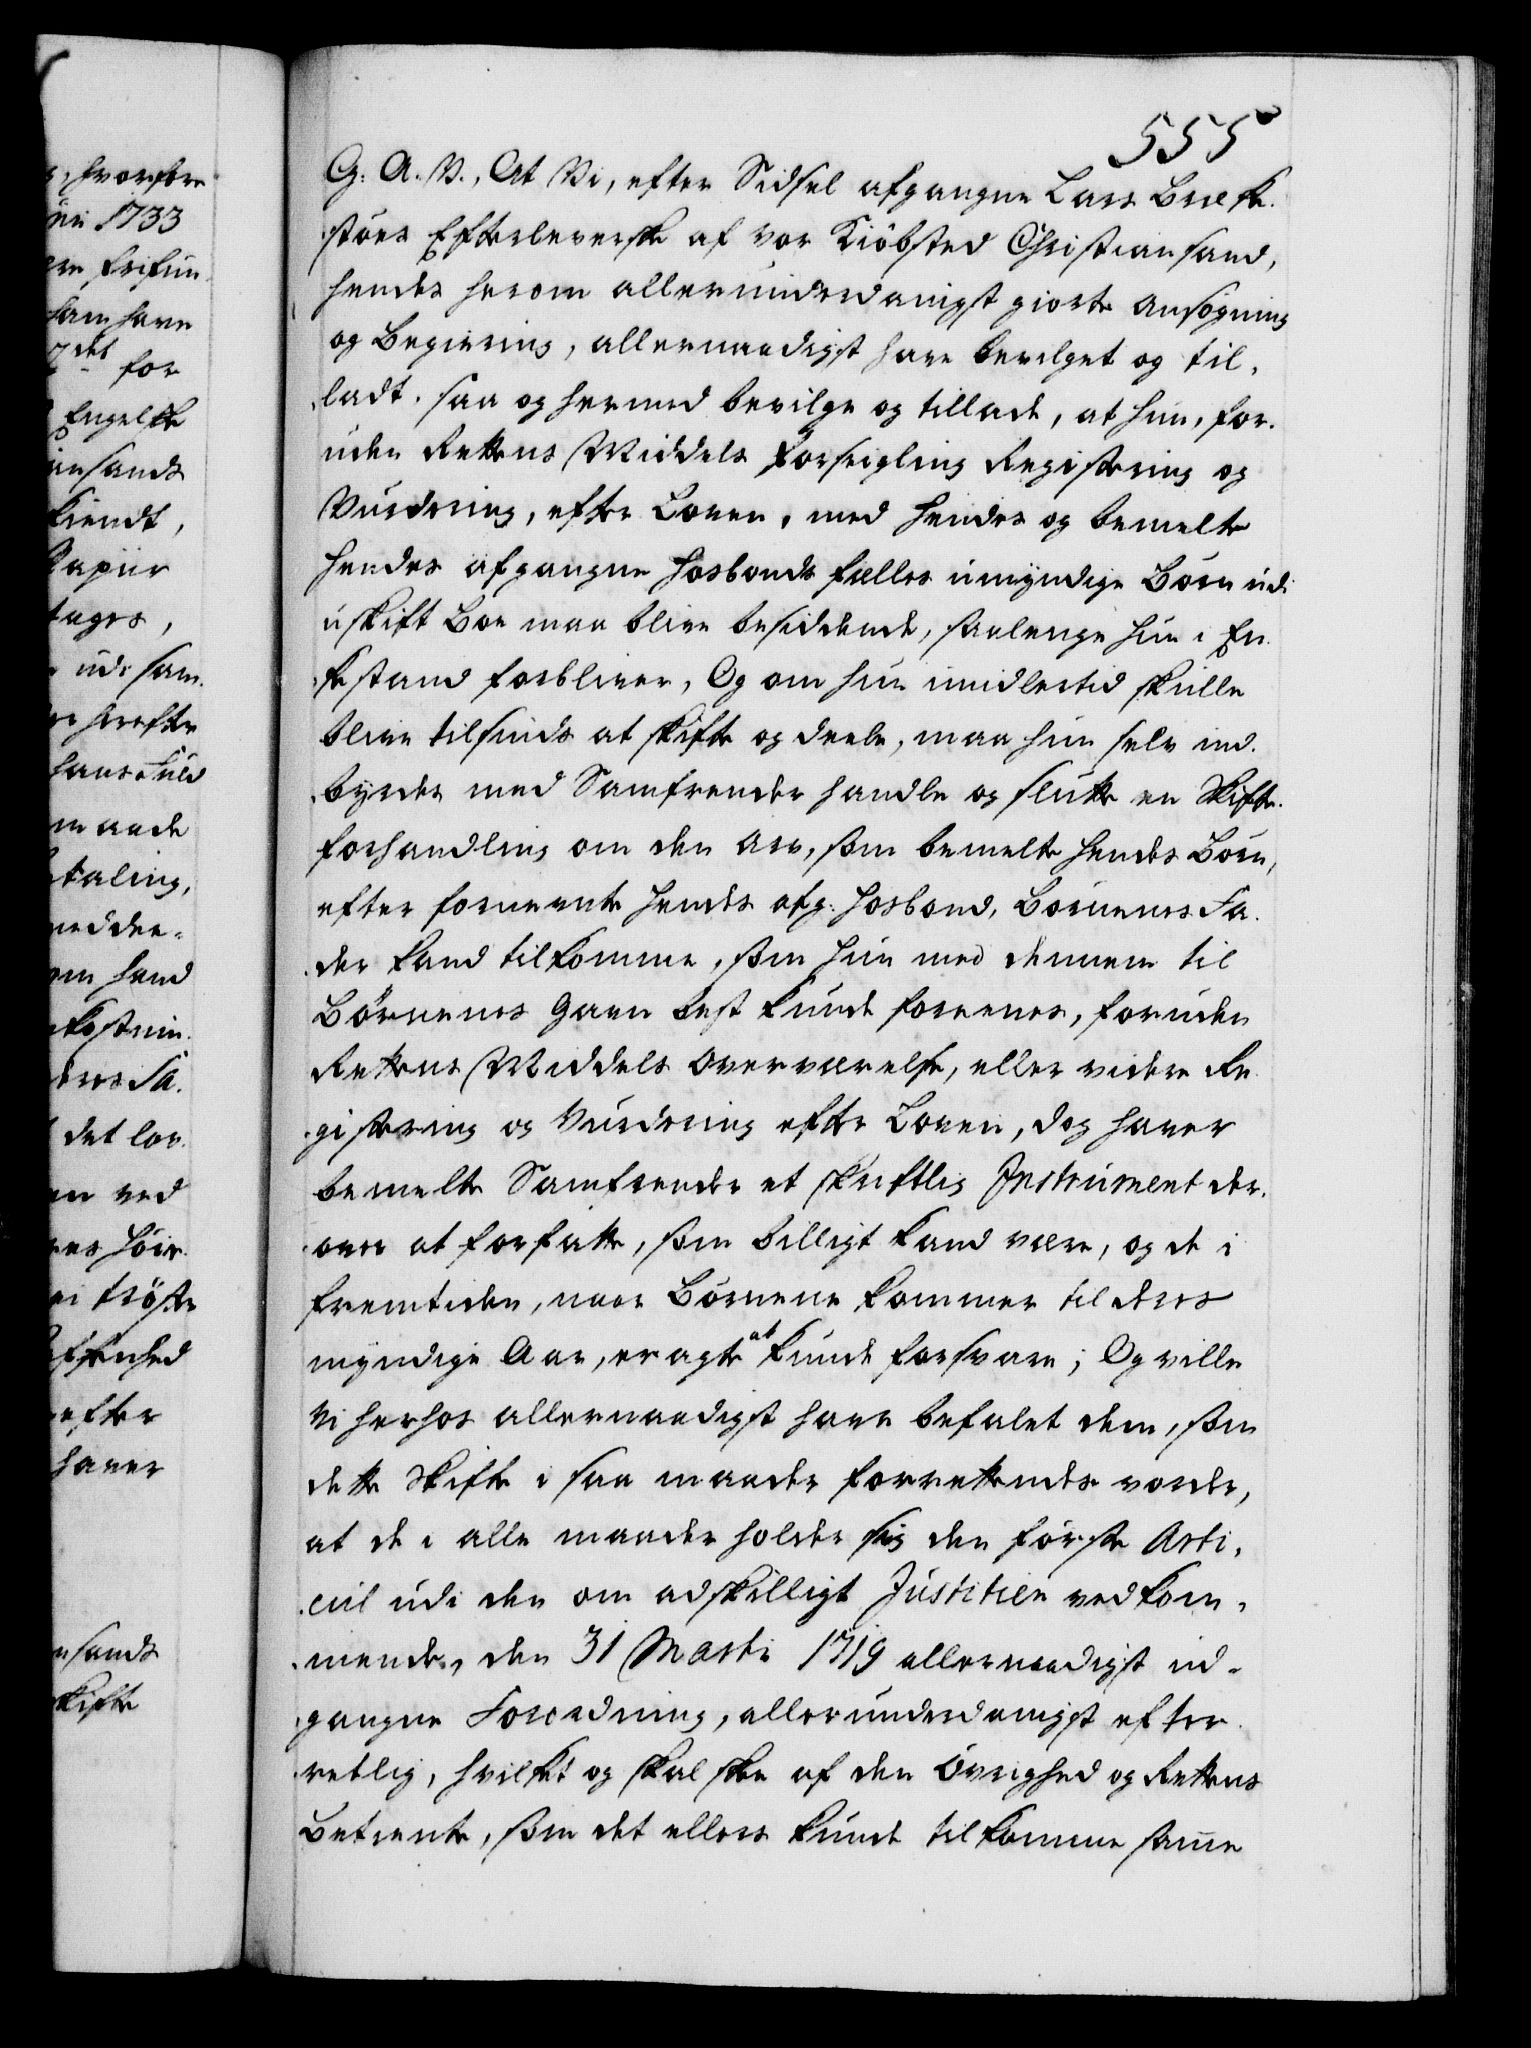 555
G: A. V., At Vi, efter Sidsel afgangne Lars Bræk-
støes Efterleverske af vor Kiöbsted Christiansand,
hendes herom allerunderdanigst giorte Ansøgning
og Begiering, allernaadigst have bevilget og til-
ladt, saa og hermed bevilge og tillade, at hun, for-
uden Rettens Middels Forseigling Registering og
Vurdering, efter Loven, med hendes og bemelte
hendes afgangne Hosbonds fælles umyndige Børn udi
uskift Boe maa blive besiddende, saalenge hun i En-
kestand forbliver, Og om hun imidlertid skulle
blive tilsinds at skifte og deele, maa hun selv ind-
byrdes med Samfrender handle og slutte en Skifte-
forhandling om den Arv, som bemelte hendes Børn,
efter fornevnte hendes afg: Hosbond, Børnenes Fa-
der kand tilkomme, som hun med dennem til
Börnenes Gavn best kunde foreenes, foruden
Rettens Middels Overværelse, eller videre Re-
gistering og Vurdering efter Loven, dog haver
bemelte Samfrender et skriftlig Instrument der-
over at forfatte, som billigt kand være, og de i
fremtiden, naar Børnene kommer til deres
myndige Aar, eragte at kunde forsvare; Og ville
Vi herhos allernaadigst have befalet dem, som
dette Skifte i saa maader forrettendes vorder,
at de i alle maader holder sig den første Arti-
cul udi den om adskilligt Justitien vedkom-
mende, den 31 Marti 1719 allernaadigst ud-
gangne Forordning, allerunderdanigst efter-
rettlig, hvilket og skal skee af den Øvrighed og Rettens
Betiente, som det ellers kunde tilkomme samme